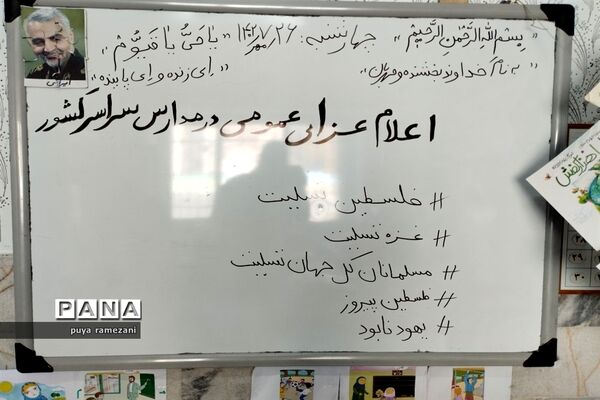 بِسْمِ اللّٰهِ الرَّحْمٰنِ الرَّحِیْمِ چهارشنبه: ۲۶ مهر ۱۴۰۲/۷ "یا حَیُّ یا قَیُّوُمْ"
"به نام خداوند بخشنده و مهربان" "ای زنده و ای پاینده"
اعلام عزای عمومی در مدارس سراسر کشور
# فلسطین تسلیت
# غزه تسلیت
# مسلمانان کل جهان تسلیت
# فلسطین پیروز
# یهود نابود
PANA
puya ramezani